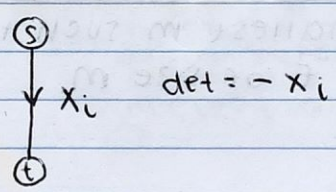 s
x_i det = - x_i
t